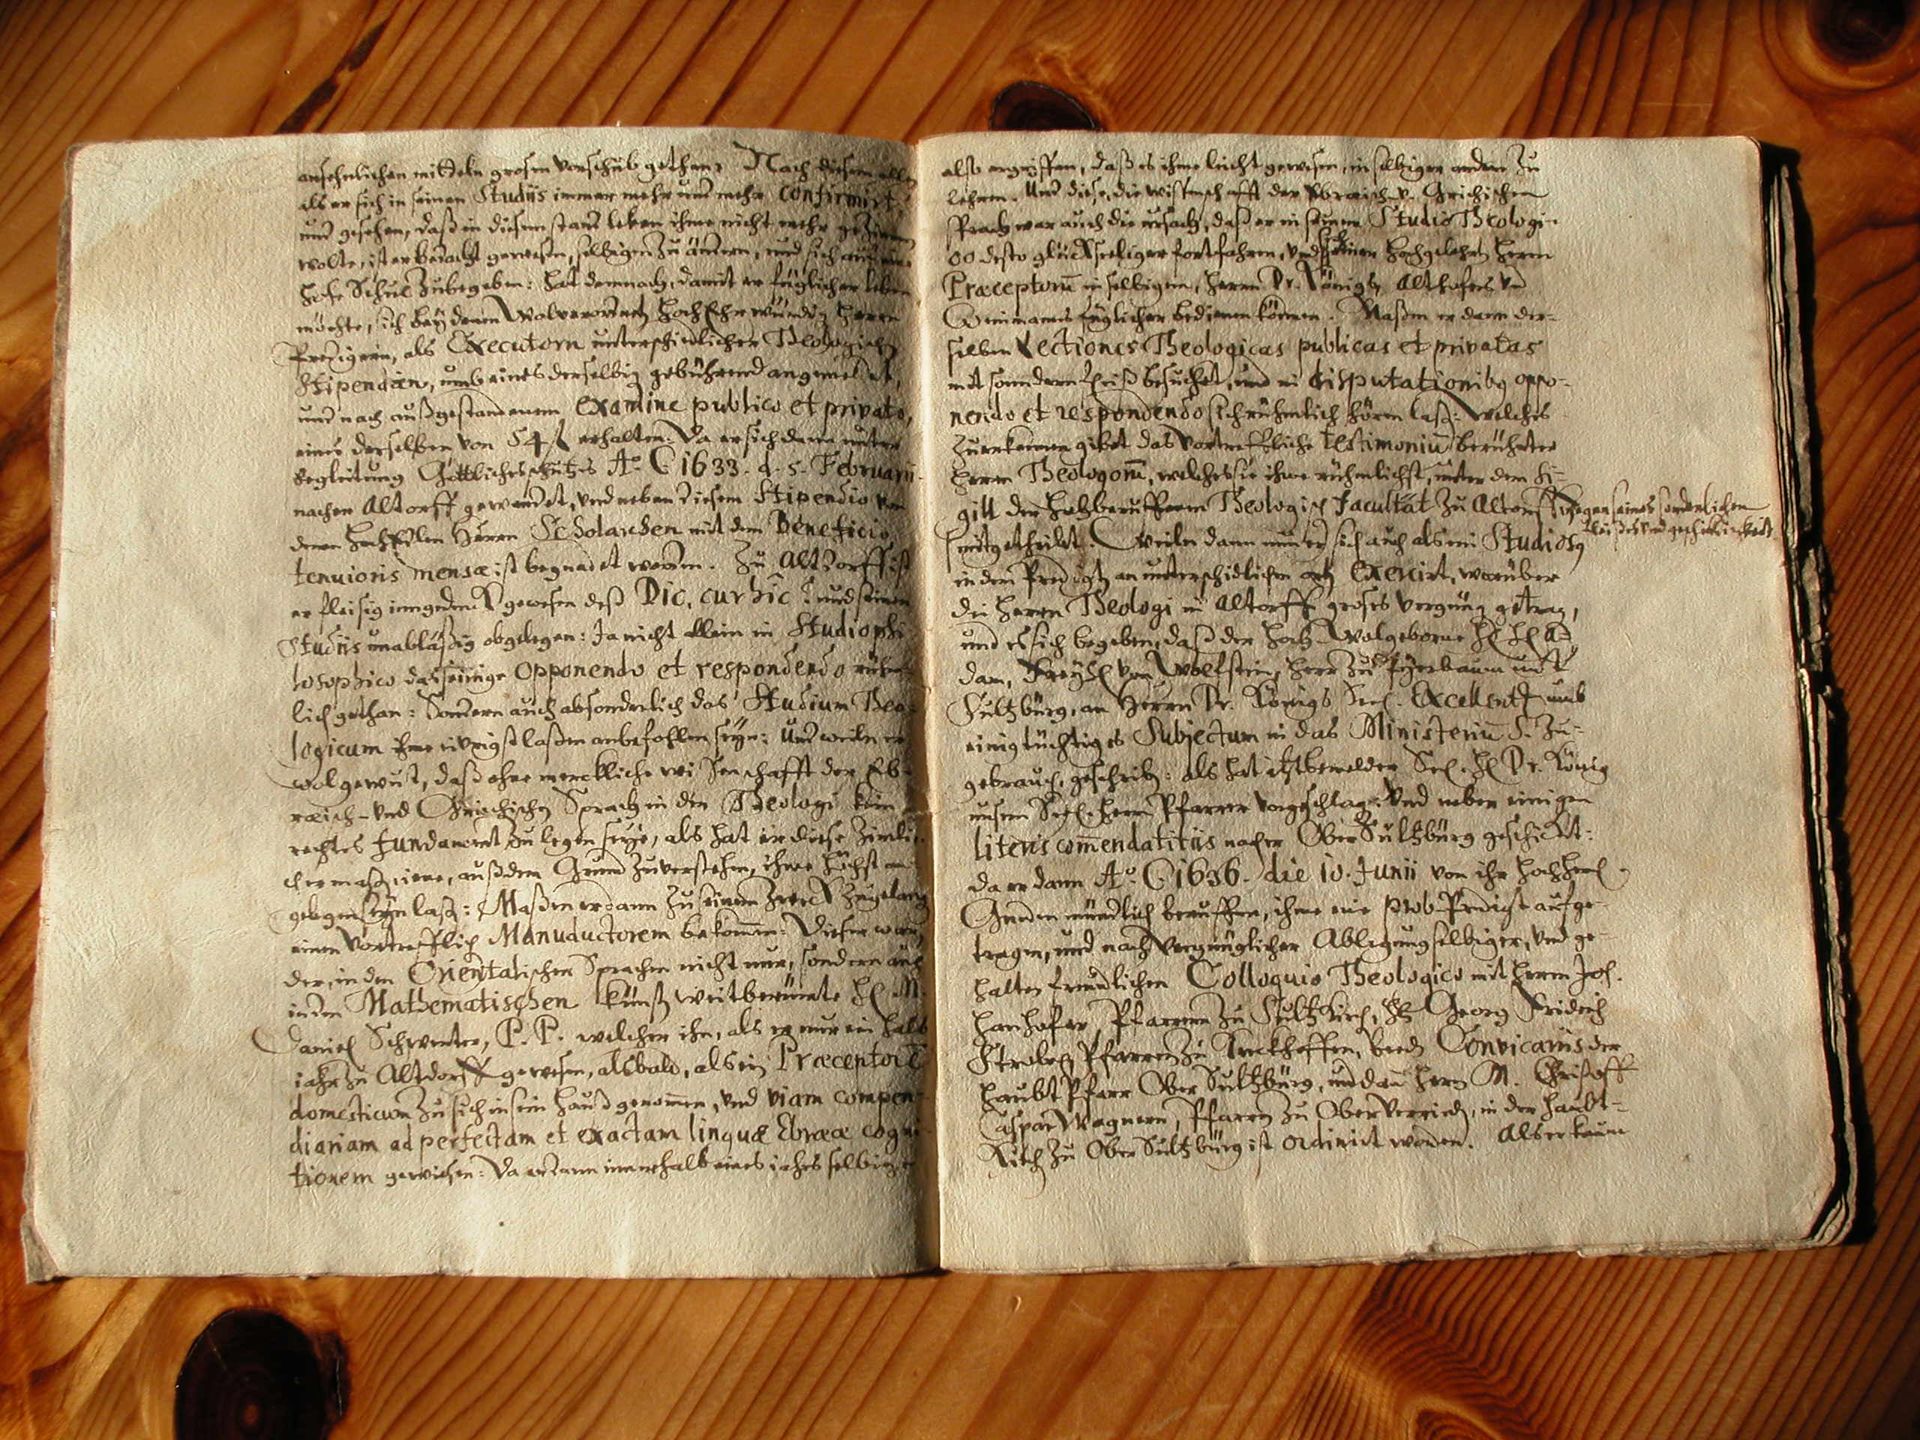 ansehnlichen mitteln grosen vorschub gethan. Nach diesem allen
als er sich in seinen Studiis immer mehr und mehr confirmirt
und gesehen, daß in diesem stand leben ihme nicht mehr
wolte, ist er bedacht gewesen, selbigen zu ändern, und sich auf eine
hohe Schul zubegeben: hat demnach, damit er füglicher leben
möchte, sich bey denen Wolverordneten HochEhrwürdig Herrn
Predigern, als Executorn unterschiedlicher Theologischen
Stipendien, umb eines derselbig gebührend angemeldet,
und nach außgestandenem examine publico et privato,
eines derselben von 54 fl erhalten. Da er sich dann unter
begleitung Göttliches schutzes Ao. C 1633. d. 5. Februarii
nachen Altorff gewendet, und neben diesem Stipendio von
denen HochEdlen Herren Scholarchen mit dem Beneficio
tenuioris mensæ ist begnadet worden. Zu Altdorff ist
er fleisig inngedenck gewesen deß Dic, cur hic? und seinen
Studiis unabläßig obgelegen: Ja nicht allein in Studio phi-
losophico das seinige opponendo et respondendo rühm-
lich gethan: Sondern auch absonderlich das Studium Theo-
logicum ihme eiverigst laßen anbefohlen seyn: Und weiln er
wol gewust, daß ohne merckliche wissenschafft der Eb-
ræisch- und Griechischen Sprach in der Theologi kein
rechtes fundament zu legen seye, als hat er diese zimli-
cher maßen, auß dem Grund zuverstehen, ihme höchst an-
gelegen seyn laßen: Maßen er dann zu seinem zweck zugelangen
einen vortrefflich Manuductorem bekommen: Dieser war
der, in den Orientalischen Sprachen nicht nur, sondern auch
in den Mathematischen künst weitberümte H. M.
Daniel Schwenter, P. P. welcher ihn, als er nur ein halb
iahr zu Altdorff gewesen, alsbald, als ein Præceptore
domesticum zu sich in sein hauß genommen, und viam compen-
diariam ad perfectam et exactam linguæ Ebrææ cogni-
tionem gewiesen: Da er dann innerhalb eines iahrs selbige
also ergriffen, daß es ihme leicht gewesen, in selbiger andere zu
lehren. Und diese, die wissenschafft der Ebræisch- u. Grichischen
Sprach war auch die ursach, daß er in seinem Studio Theologi-
co desto glückseeliger fortfahren, und seiner Hochgelehrten Herrn
Præceptorũ in selbigem, Herrn Dr. Königs, Althofers und
Weinmanns füglicher bedienen können. Maßen er dann der-
selben Lectiones Theologicas publicas et privatas
mit sonderm fleiß besuchet, und in disputationibg oppo-
nendo et respondendo sich rühmlich hören laßen: welches
zuerkennen gibet das vortreffliche testimoniũ berühmter
Herrn Theologorũ, welches sie ihme rühmlichst, unter dem Si-
gill der Hochberuffenen Theologisch Facultät zu Altorff, wegen seines sonderlichen
fleißes und geschicklichkeit
mitgetheilet. Weiln dann nun er sich auch als ein Studiosg
in dem Predigen an unterschidlichen orth exercirt, worüber
die Herrn Theologi in Altorff groses vergnüg getrag,
und es sich begeben, daß der Hoch-Wolgeborne H. H. A-
dam, Freyh. von Wolfstein, Herr zu Pyrbaum und
Sultzbürg, an Herrn Dr. Königs Seel. Excellentz umb
einig tüchtiges Subjectum in das Ministeriũ S. zu-
gebrauch, geschrieb: als hat itztbemelder Seel. H. Dr. König
unsern Seel. Herrn Pfarrer vorgeschlag: und neben einigen
literis com̃endatitiis nacher Ober Sultzbürg geschickt:
da er dann Ao. C 1636. die 10. Junii von ihr HochHerrl.
Gnaden mündlich beruffen, ihme eine prob-Predigt aufge-
tragen, und nach vergnüglicher Ablegung selbiger, und ge-
halten freundlichen Colloquio Theologico mit Herrn Joh.
Hanhofer, Pfarrern zu Sultzkirch, H. Georg Friderich
Pfarrern zu Kerckhoffen, beeden Convicariis der
Haubt Pfarr Ober Sultzbürg, und dan̄ Herrn M. Christoff
Caspar Wagnern, Pfarrn zu Ober Verrieden, in der Haubt-
Kirch zu Ober Sultzbürg ist ordinirt worden. Als er kaum